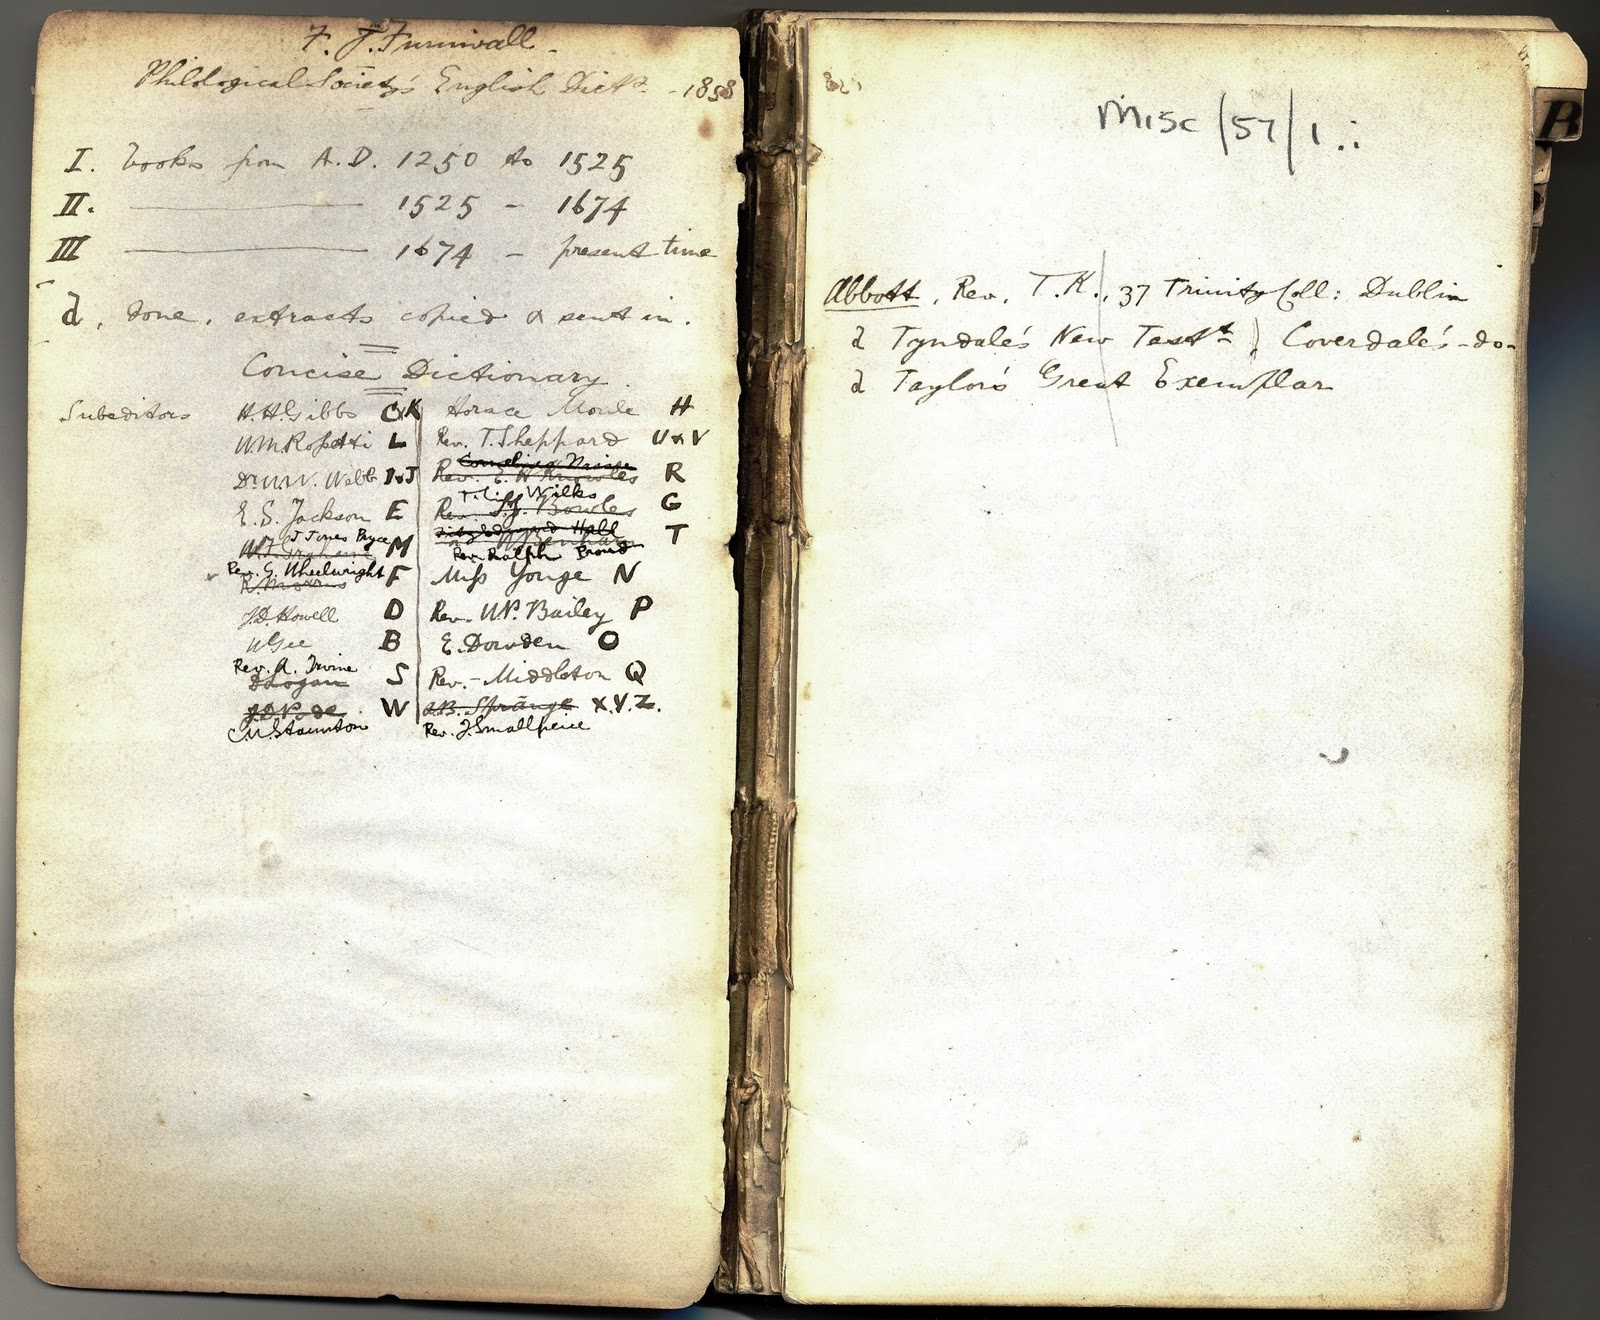 F. J. Furnivall
Philological Society's English Dicty. - 1858
I. books from A.D. 1250 to 1525
II. ——— 1525 - 1674
III ——— 1674 - present time
d, done, extracts copied & sent in.
Concise Dictionary.
Subeditors H.H. Gibbs C&K Horace Moule H
W.M. Rossetti L Rev. T. Sheppard U&V
Dr W.W. Webb I&J Rev. E. H. Knowles R
T. Wilks
E. S. Jackson E Rev. Bowles G
Fitzedward Hall
J Jones Pryce
M T
Rev. Ralph Broad
Rev. G. Wheelwright
R. Morris F Miss Yonge N
J.D. Howell D Rev. W.P. Bailey P
W Gee B E. Dowden O
Rev. A. Irvine
D Logan S Rev. - Middleton Q
W A.B. Strange X.Y.Z.
C.W. Staunton Rev. J. Smallpeice
Misc/57/1.:
Abbott, Rev. T. K., 37 Trinity Coll: Dublin
d Tyndale's New Testt) Coverdale's -do-
d Taylor's Great Exemplar
B